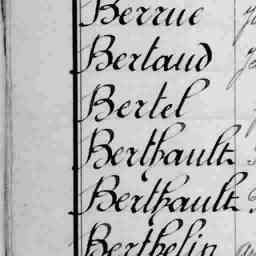 Berruc
Bertaud
Bertel
Berthault
Berthault
Berthelin